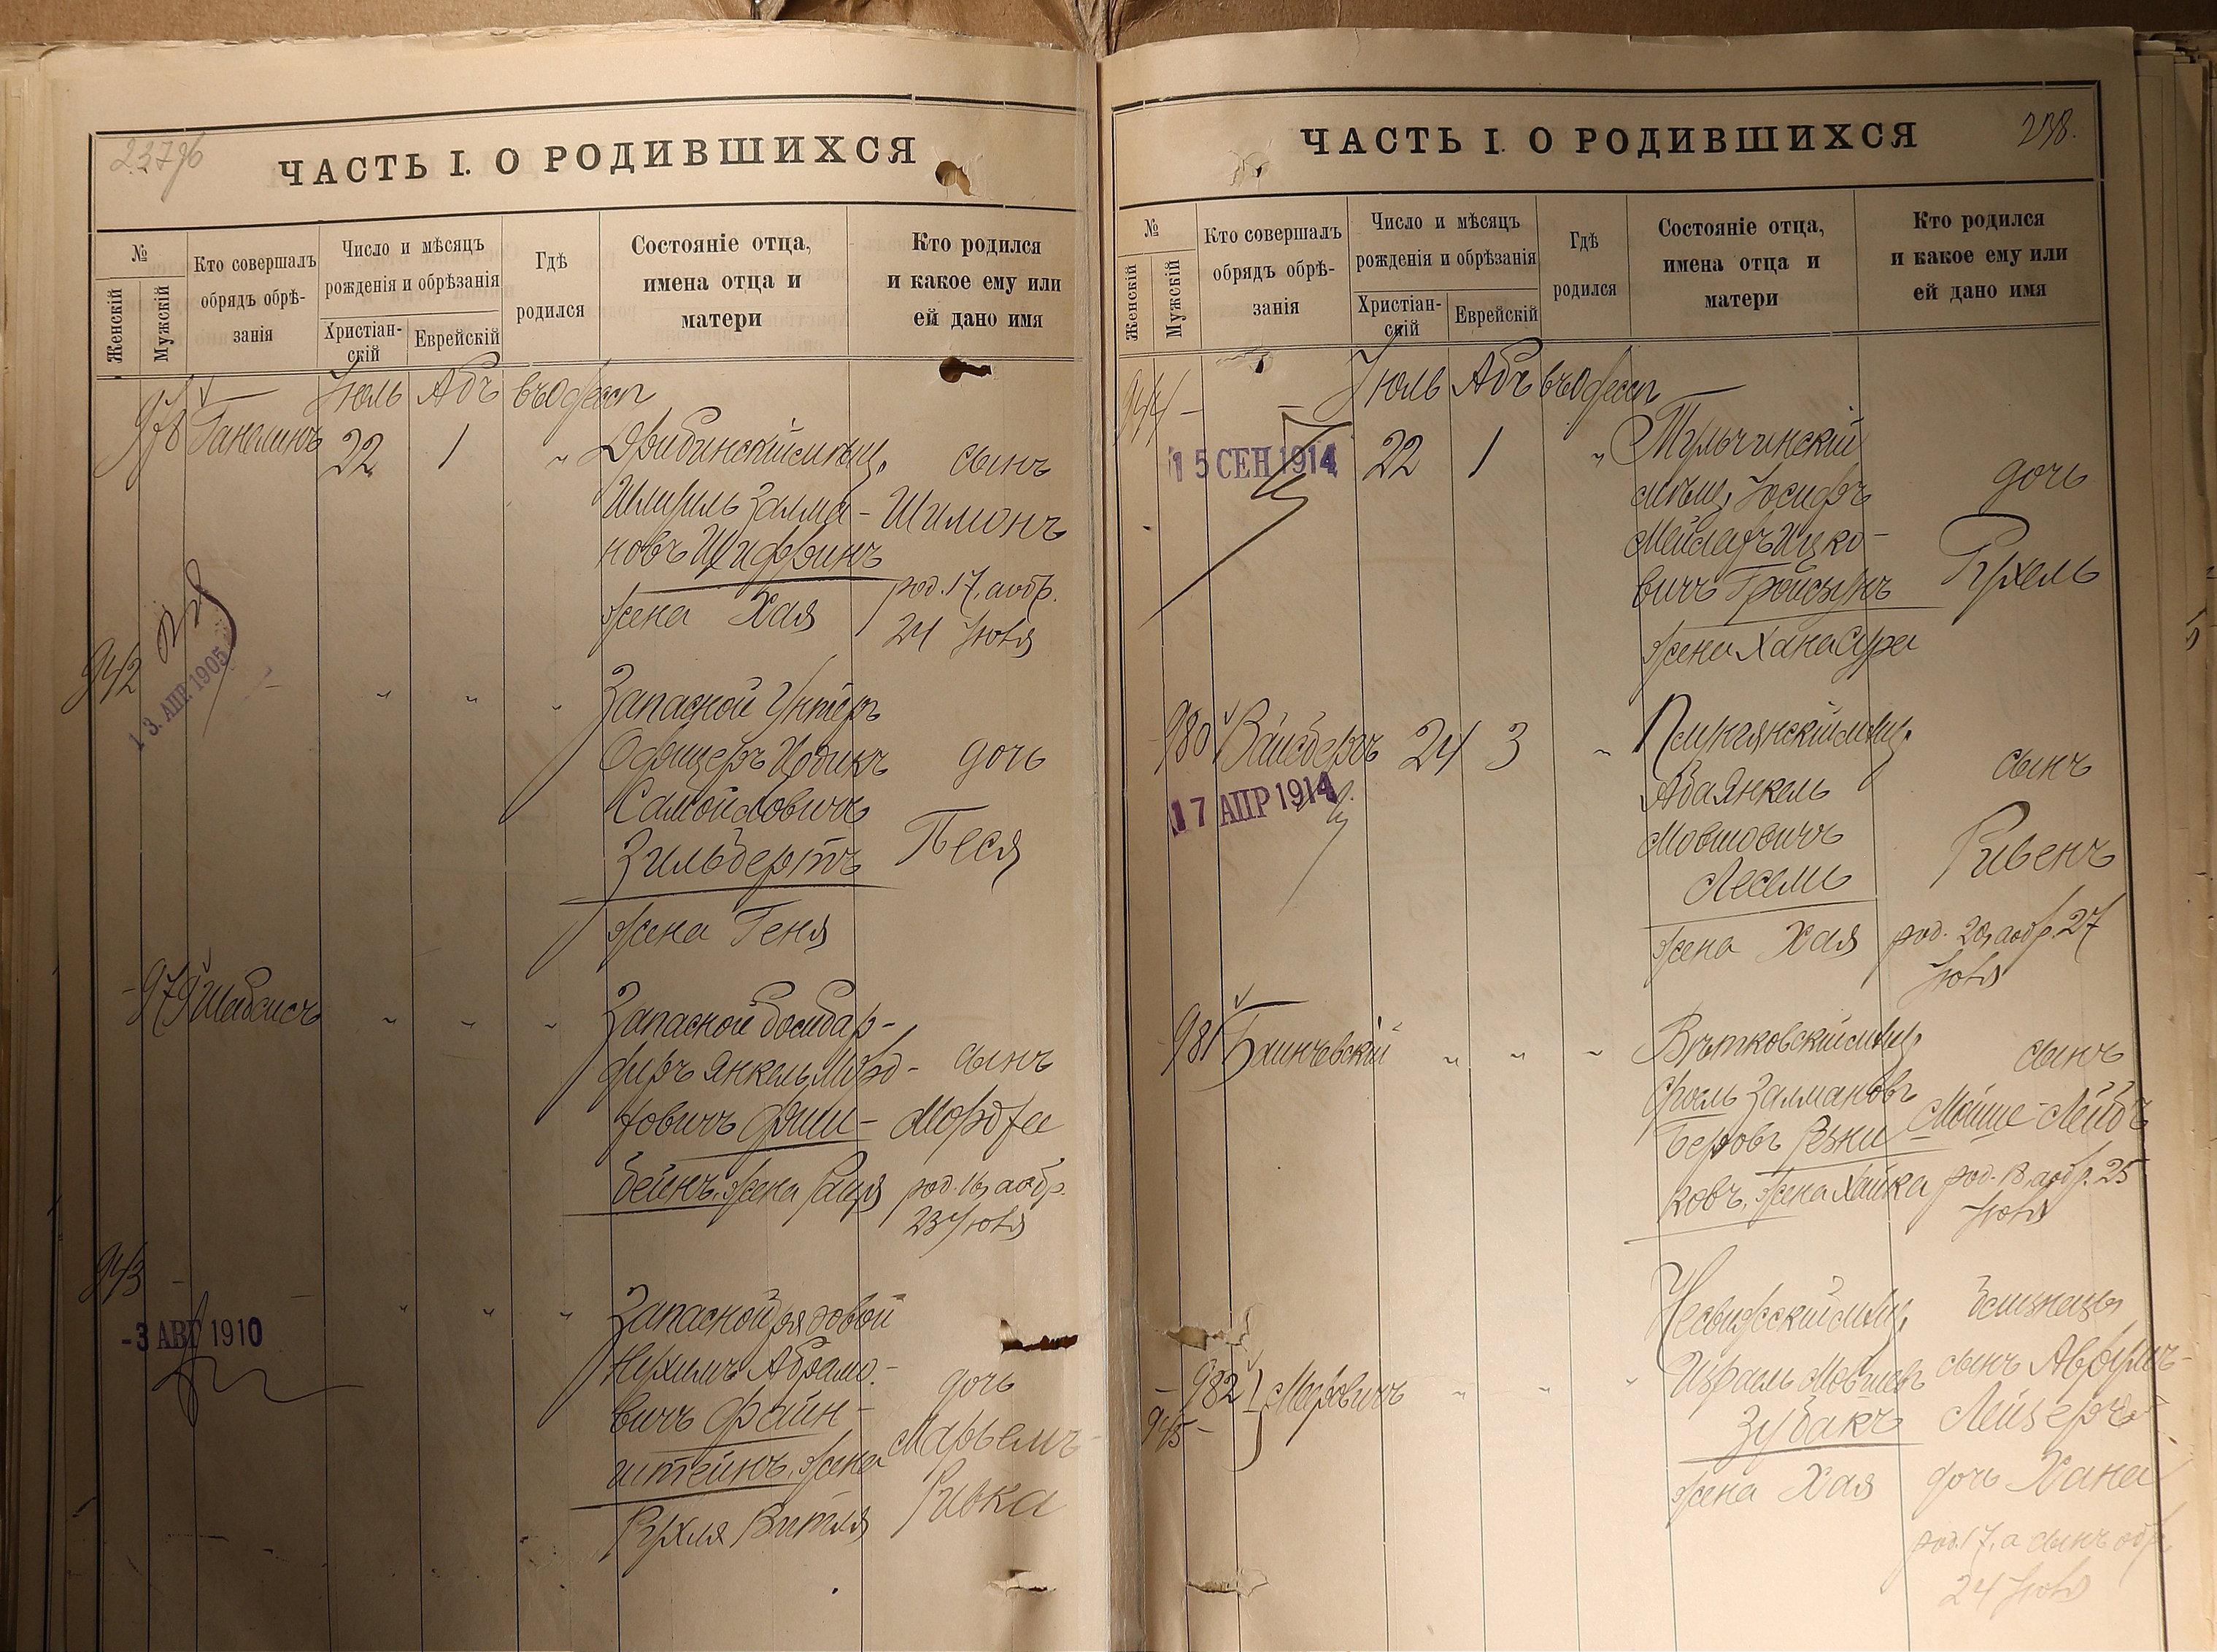 ЧАСТЬ I. О РОДИВШИХСЯ
№
Женскій
Мужскій
Кто совершалъ
обрядъ обрѣ-
занія
Число и мѣсяцъ
рожденія и обрѣзанія
Христіан-
скій
Еврейскій
Гдѣ
родился
Состояніе отца,
имена отца и
матери
Кто родился
и какое ему или
ей дано имя
978 Ганелинъ
Іюль Абъ въ Одессѣ
22 1 "
Дрибинскій мѣщ.
Шмуиль Залма-
новъ Шифринъ
жена Хая
сынъ
Шимонъ
род. 17, а обр.
24 Іюля
942
13. АПР. 1905
" " "
Запасной Унтеръ
Офицеръ Ицикъ
Самойловичъ
Зильбертъ
жена Геня
дочь
Песя
979 Шабсисъ
" " "
Запасной бомбар-
диръ Янкель Морд-
ковичъ Фиш-
бейнъ, жена Рася
сынъ
Мордке
род. 16, а обр.
23 Іюля
943
-3 АВГ 1910
" " "
Запасной рядовой
Нухимъ Абрамо-
вичъ Файн-
штейнъ, жена
Рухля Витля
дочь
Марьемъ-
Ривка
ЧАСТЬ I. О РОДИВШИХСЯ
298.
№
Женскій
Мужскій
Кто совершалъ
обрядъ обрѣ-
занія
Число и мѣсяцъ
рожденія и обрѣзанія
Христіан-
скій
Еврейскій
Гдѣ
родился
Состояніе отца,
имена отца и
матери
Кто родился
и какое ему или
ей дано имя
944 - -
Іюль Абъ въ Одессѣ
15 СЕН 1914
22 1 "
Тульчинскій
мѣщ. Іосифъ
Ицко-
вичъ Гройсунъ
жена Хана Сура
дочь
Рухель
980 Вайсбергъ 24 3 "
17 АПР 1914
мѣщ.
Аба Янкель
Мовшовичъ
Лесель
жена Хая
сынъ
Рувенъ
род. 20, а обр. 27
Іюля
981 Блинчевскій
" " "
Вѣтковскій мѣщ.
Сроль Залмановъ
Беровъ Резни
ковъ, жена Хайка
сынъ
Мойше-Лейбъ
род. 18, а обр. 25
Іюля
982 Меровичъ
945 -
" " "
Несвижскій мѣщ.
Израель Мовшевъ
Зубакъ
жена Хая
близнецы
сынъ Аврумъ-
Лейзеръ
дочь Хана
род. 17, а сынъ обр.
24 Іюля